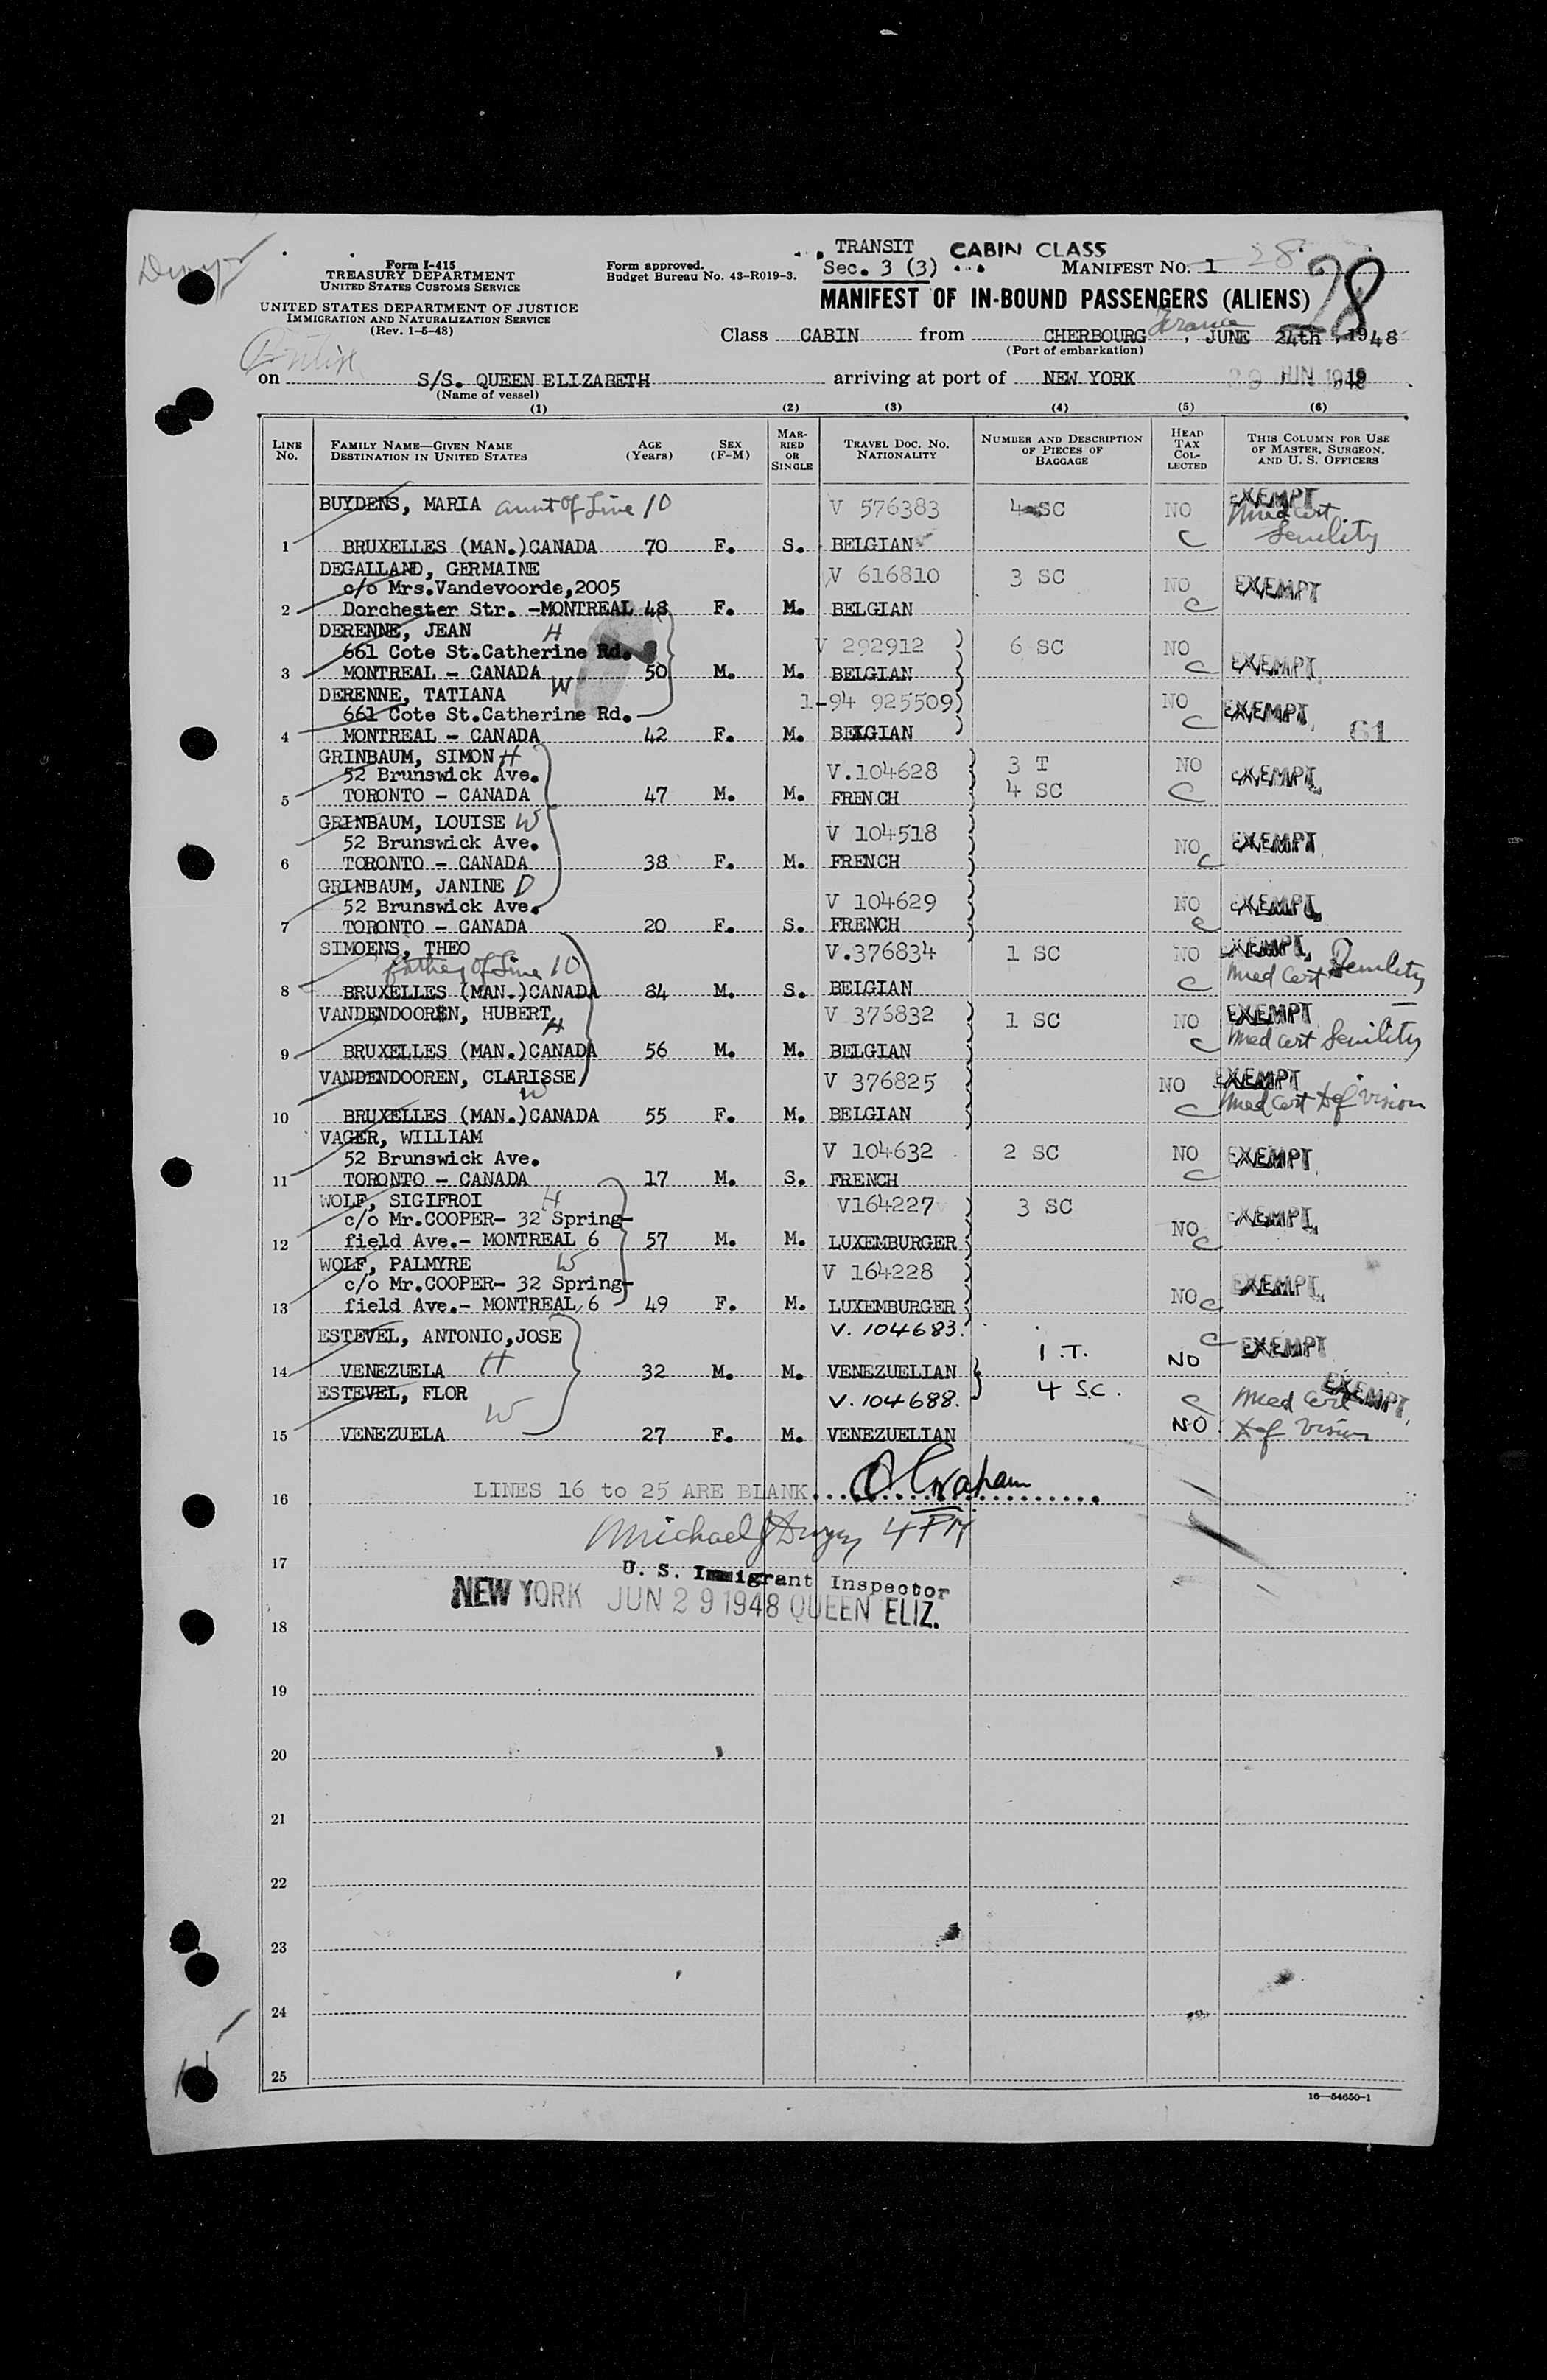 TRANSIT CABIN CLASS
Form I-415
TREASURY DEPARTMENT
UNITED STATES CUSTOMS SERVICE
Form approved.
Budget Bureau No. 43-R019-3.
Sec. 3 (3)
MANIFEST No. 1 28
28
UNITED STATES DEPARTMENT OF JUSTICE
IMMIGRATION AND NATURALIZATION SERVICE
(Rev. 1-5-48)
MANIFEST OF IN-BOUND PASSENGERS (ALIENS)
Class CABIN from CHERBOURG France, JUNE 24th, 1948
(Port of embarkation)
British
on S/S. QUEEN ELIZABETH arriving at port of NEW YORK 29 JUN 1948
(Name of vessel)
(1) (2) (3) (4) (5) (6)
LINE No. FAMILY NAME—GIVEN NAME DESTINATION IN UNITED STATES AGE (Years) SEX (F-M) MARRIED OR SINGLE TRAVEL DOC. NO. NATIONALITY NUMBER AND DESCRIPTION OF PIECES OF BAGGAGE HEAD TAX COLLECTED THIS COLUMN FOR USE OF MASTER, SURGEON, AND U. S. OFFICERS
BUYDENS, MARIA aunt of Line 10 V 576383 4 SC NO EXEMPT
Med cert.
1 BRUXELLES (MAN.)CANADA 70 F. S. BELGIAN C Senility
DEGALLAND, GERMAINE V 616810 3 SC NO EXEMPT
c/o Mrs.Vandevoorde,2005
2 Dorchester Str. -MONTREAL 48 F. M. BELGIAN C
DERENNE, JEAN H V 292912 6 SC NO
661 Cote St.Catherine Rd.
3 MONTREAL - CANADA 50 M. M. BELGIAN C EXEMPT
DERENNE, TATIANA W 1-94 925509 NO EXEMPT
661 Cote St.Catherine Rd. C
4 MONTREAL - CANADA 42 F. M. BELGIAN 61
GRINBAUM, SIMON H V.104628 3 T NO EXEMPT
52 Brunswick Ave. 4 SC
5 TORONTO - CANADA 47 M. M. FRENCH C
GRINBAUM, LOUISE W V 104518 EXEMPT
52 Brunswick Ave. NO
6 TORONTO - CANADA 38 F. M. FRENCH C
GRINBAUM, JANINE D V 104629 NO EXEMPT
52 Brunswick Ave.
7 TORONTO - CANADA 20 F. S. FRENCH C
SIMOENS, THEO V.376834 1 SC NO EXEMPT
father of Line 10 Med Cert Senility
8 BRUXELLES (MAN.)CANADA 84 M. S. BELGIAN C
VANDENDOOREN, HUBERT H V 376832 1 SC NO EXEMPT
Med cert Senility
9 BRUXELLES (MAN.)CANADA 56 M. M. BELGIAN C
VANDENDOOREN, CLARISSE W V 376825 NO EXEMPT
Med cert Def vision
10 BRUXELLES (MAN.)CANADA 55 F. M. BELGIAN C
VAGER, WILLIAM V 104632 2 SC NO EXEMPT
52 Brunswick Ave.
11 TORONTO - CANADA 17 M. S. FRENCH C
WOLF, SIGIFROI H V164227 3 SC EXEMPT
c/o Mr.COOPER- 32 Spring- NO
12 field Ave.- MONTREAL 6 57 M. M. LUXEMBURGER C
WOLF, PALMYRE W V 164228 EXEMPT
c/o Mr.COOPER- 32 Spring-
13 field Ave.- MONTREAL 6 49 F. M. LUXEMBURGER NO C
ESTEVEL, ANTONIO,JOSE V. 104683. C EXEMPT
14 VENEZUELA H 32 M. M. VENEZUELIAN 1 T. NO
ESTEVEL, FLOR W V. 104688. 4 SC. C Med Cert EXEMPT
15 VENEZUELA 27 F. M. VENEZUELIAN NO Def Vision
16 LINES 16 to 25 ARE BLANK. Graham
Michael J Dwyer 4 PM
17 U. S. Immigrant Inspector
NEW YORK JUN 29 1948 QUEEN ELIZ.
18
19
20
21
22
23
24
25
16—54650-1